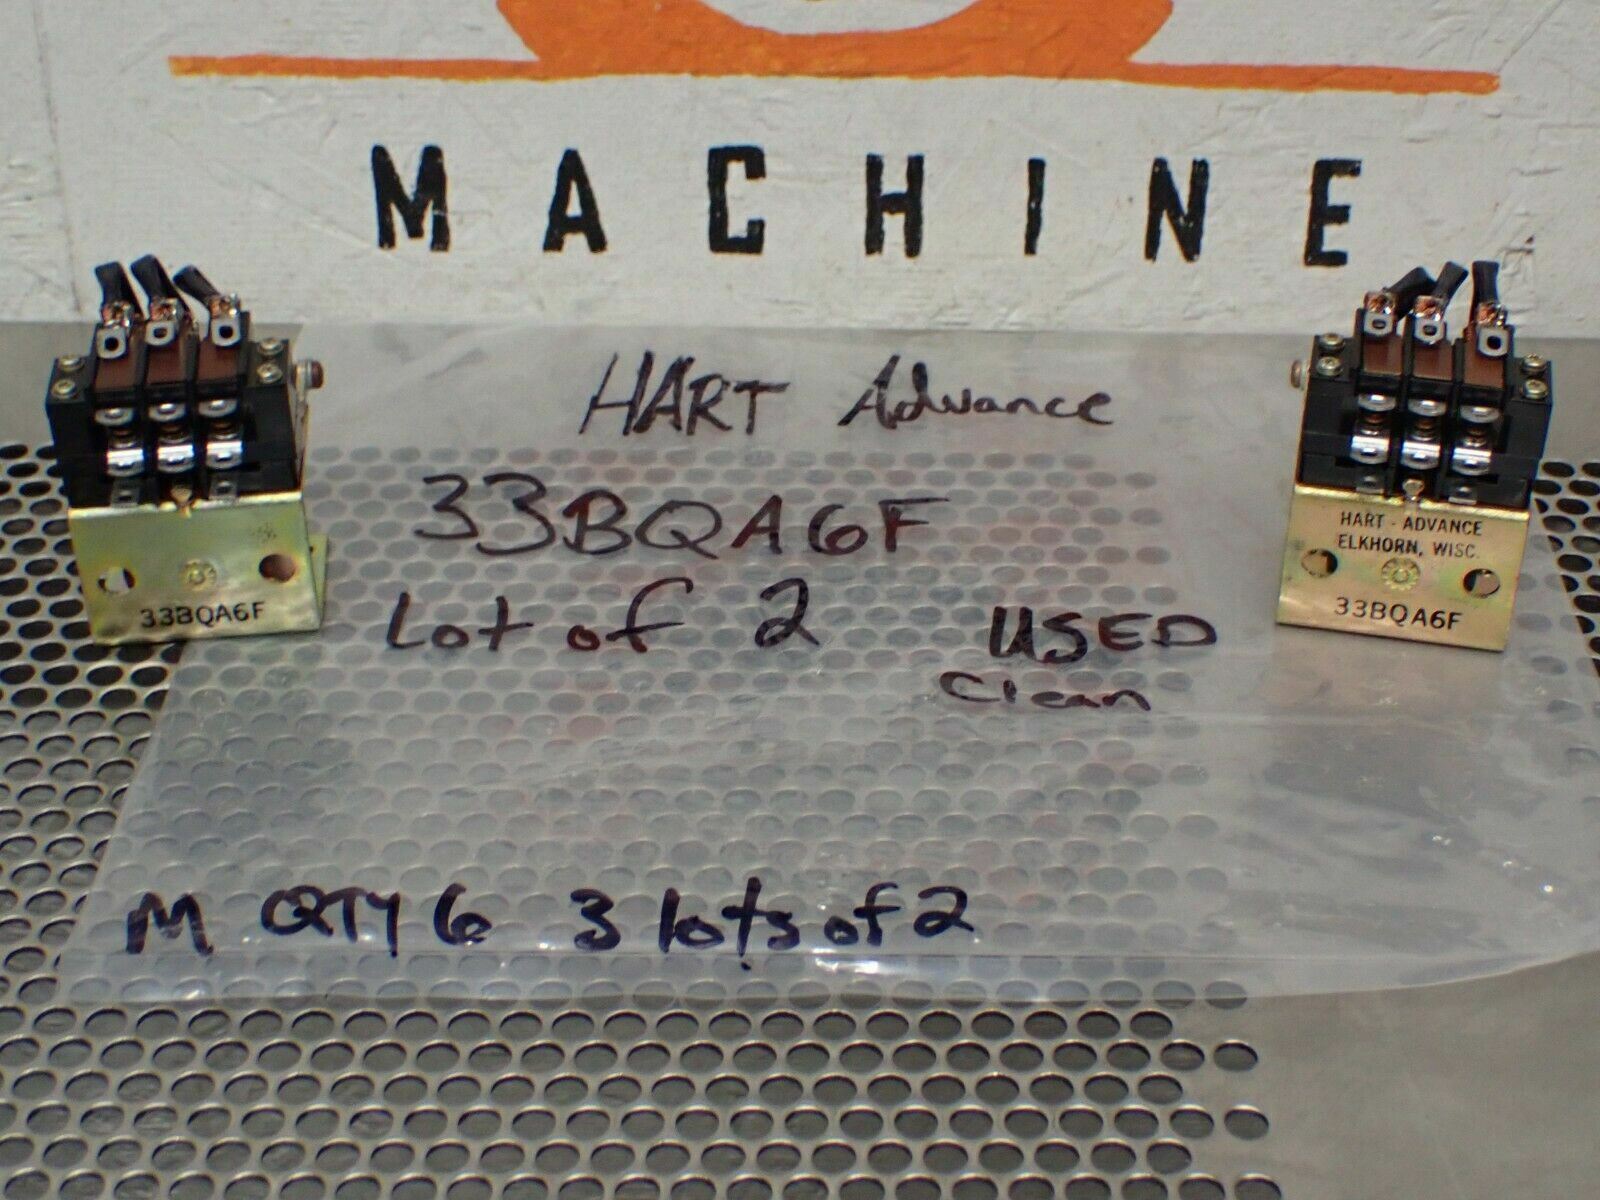 MACHINE
HART Advance
33BQA6F
Lot of 2
USED
Clean
33BQA6F
HART - ADVANCE
ELKHORN, WISC.
33BQA6F
M QTY 6 3 lots of 2